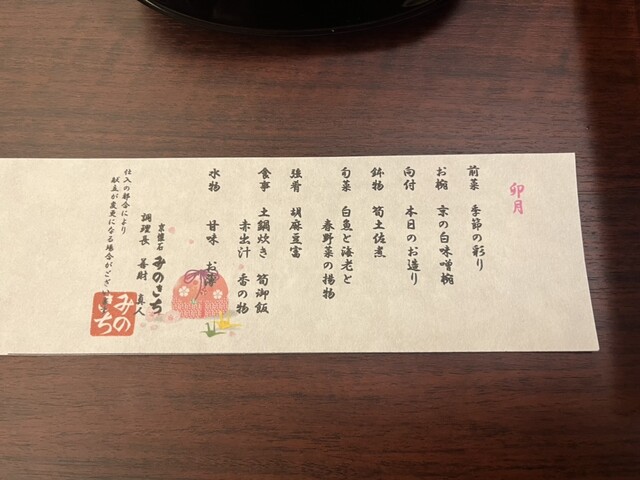 卯月
前菜 季節の彩り
お椀 京の白味噌椀
向付 本日のお造り
鉢物 筍土佐煮
旬菜 白魚と海老と
春野菜の揚物
強肴 胡麻豆富
食事 土鍋炊き 筍御飯
赤出汁 香の物
水物 甘味 お薄
京懐石 みのきち
調理長 善財 真人
仕入の都合により
献立が変更になる場合がございます
みの
きち